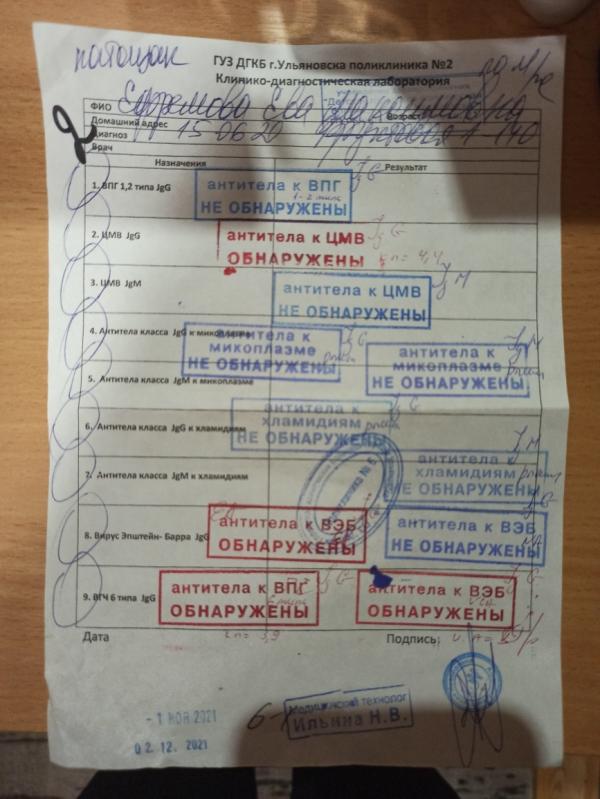 натощак
ГУЗ ДГКБ г.Ульяновска поликлиника №2
Клинико-диагностическая лаборатория
ФИО Ефремова Ева Максимовна
Домашний адрес
15.06.20
Диагноз
Врач
Назначения Результат
1. ВПГ 1,2 типа JgG
антитела к ВПГ
1-2 типа
НЕ ОБНАРУЖЕНЫ
Jg G
2. ЦМВ JgG
антитела к ЦМВ
ОБНАРУЖЕНЫ
Jg G
кп= 4,4
3. ЦМВ JgM
антитела к ЦМВ
НЕ ОБНАРУЖЕНЫ
Jg M
4. Антитела класса JgG к микоплазме
антитела к
микоплазме
НЕ ОБНАРУЖЕНЫ
Jg G
антитела к
микоплазме
НЕ ОБНАРУЖЕНЫ
Jg M
5. Антитела класса JgM к микоплазме
6. Антитела класса JgG к хламидиям
антитела к
хламидиям
НЕ ОБНАРУЖЕНЫ
Jg G
7. Антитела класса JgM к хламидиям
антитела к
хламидиям
НЕ ОБНАРУЖЕНЫ
Jg M
8. Вирус Эпштейн- Барра JgG
антитела к ВЭБ
ОБНАРУЖЕНЫ
антитела к ВЭБ
НЕ ОБНАРУЖЕНЫ
9. ВГЧ 6 типа JgG
антитела к ВПГ
6 типа
ОБНАРУЖЕНЫ
Jg G
антитела к ВЭБ
ОБНАРУЖЕНЫ
Jg G
Дата кп= 3,9 Подпись:
- 1 НОЯ 2021
02. 12. 2021
Медицинский технолог
Ильина Н.В.